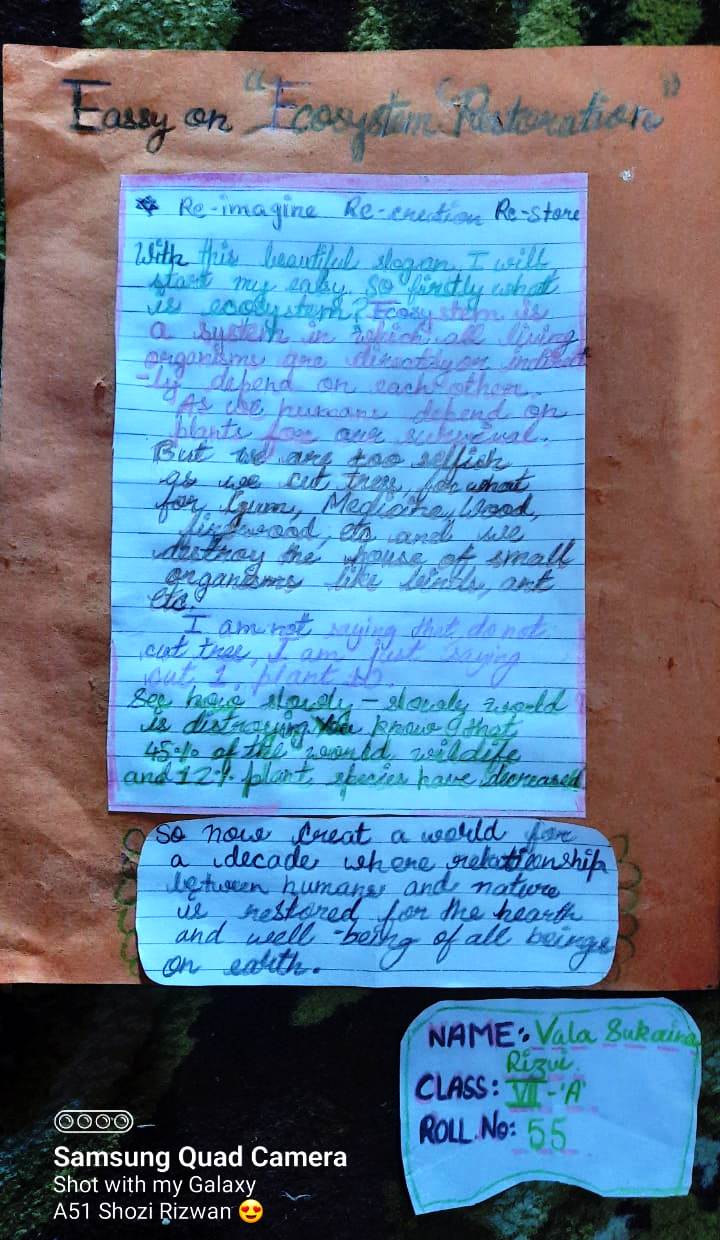 Eassy on "Ecosystem Restoration"
Re-imagine Re-creation Re-store
With this beautiful slogan, I will
start my easy. So firstly what
is ecosystem? Ecosystem is
a system in which all living
organisms are directly or indirect
-ly depend on each other.
As we humans depend on
plants for our survival.
But we are too selfish
as we cut trees, for what
for gum, Medicine, Wood,
firewood, etc and we
destroy the house of small
organisms like birds, ant
etc.
I am not saying that do not
cut tree, I am just saying
cut 1, plant 10.
See how slowly-slowly world
is distroying You know that
45% of the world wildlife
and 12% plant species have decreased
So now creat a world for
a decade where relationship
between humans and nature
is restored for the hearth
and well-being of all beings
on earth.
NAME: Vala Sukaina
Rizvi
CLASS: VII-'A'
ROLL.No: 55
Samsung Quad Camera
Shot with my Galaxy
A51 Shozi Rizwan 😍